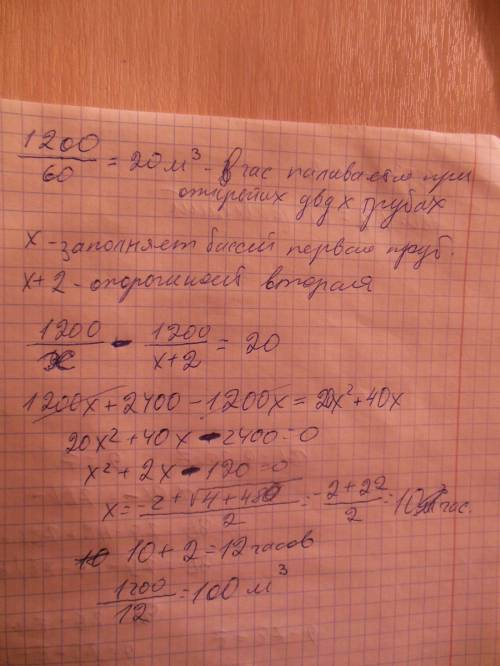 1200/60 = 20 м³ - в час наливается при
открытых двух трубах
x - заполняет бассей первая труб.
x+2 - опорожняет вторая
1200/x - 1200/x+2 = 20
1200x + 2400 - 1200x = 20x² + 40x
20x² + 40x - 2400 = 0
x² + 2x - 120 = 0
x = -2+√4+480/2 = -2+22/2 = 10 час.
10 + 2 = 12 часов
1200/12 = 100 м³